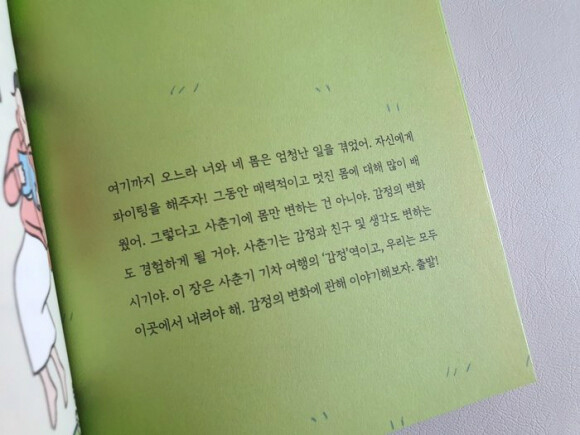 여기까지 오느라 너와 네 몸은 엄청난 일을 겪었어. 자신에게
파이팅을 해주자! 그동안 매력적이고 멋진 몸에 대해 많이 배
웠어. 그렇다고 사춘기에 몸만 변하는 건 아니야. 감정의 변화
도 경험하게 될 거야. 사춘기는 감정과 친구 및 생각도 변하는
시기야. 이 장은 사춘기 기차 여행의 '감정'역이고, 우리는 모두
이곳에서 내려야 해. 감정의 변화에 관해 이야기해보자. 출발!